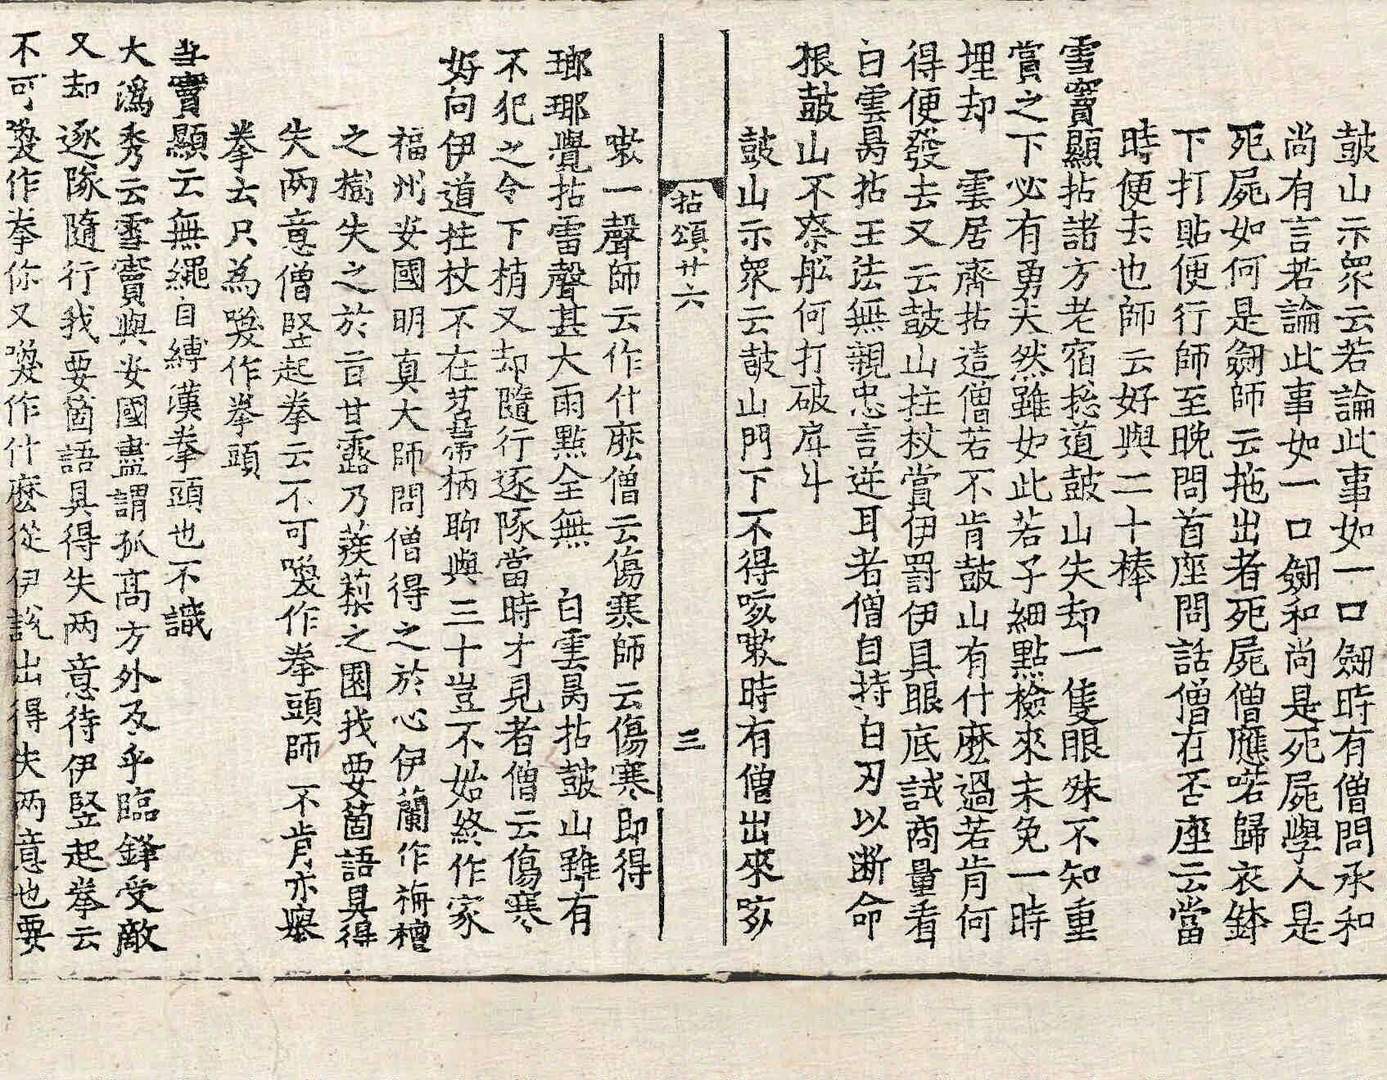 鼓山示衆云若論此事如一口劒時有僧問承和
尚有言若論此事如一口劒和尚是死屍學人是
死屍如何是劒師云拖出者死屍僧應喏歸衣鉢
下打貼便行師至晚問首座問話僧在否座云當
時便去也師云好與二十棒
雪竇顯拈諸方老宿捴道鼓山失却一隻眼殊不知重
賞之下必有勇夫然雖如此若子細點檢來未免一時
埋却 雲居齊拈這僧若不肯鼓山有什麽過若肯何
得便發去又云鼓山拄杖賞伊罰伊具眼底試商量看
白雲昺拈王法無親忠言逆耳者僧自持白刃以断命
根鼓山不柰舩何打破戽斗
鼓山示衆云鼓山門下不得咳嗽時有僧出來咳
拈頌廿六
三
嗽一聲師云作什麽僧云傷寒師云傷寒即得
瑯瑘覺拈雷聲甚大雨點全無 白雲昺拈鼓山雖有
不犯之令下梢又却隨行逐隊當時才見者僧云傷寒
好向伊道拄杖不在苕帚柄聊與三十豈不始終作家
福州安國明真大師問僧得之於心伊蘭作栴檀
之樹失之於旨甘露乃蒺䔧之園我要箇語具得
失两意僧竪起拳云不可喚作拳頭師不肯亦舉
拳云只為喚作拳頭
雪竇顯云無繩自縛漢拳頭也不識
大潙秀云雪竇與安國盡謂孤高方外及乎臨鋒受敵
又却逐隊隨行我要箇語具得失两意待伊竪起拳云
不可喚作拳你又喚作什麽從伊說出得失两意也要